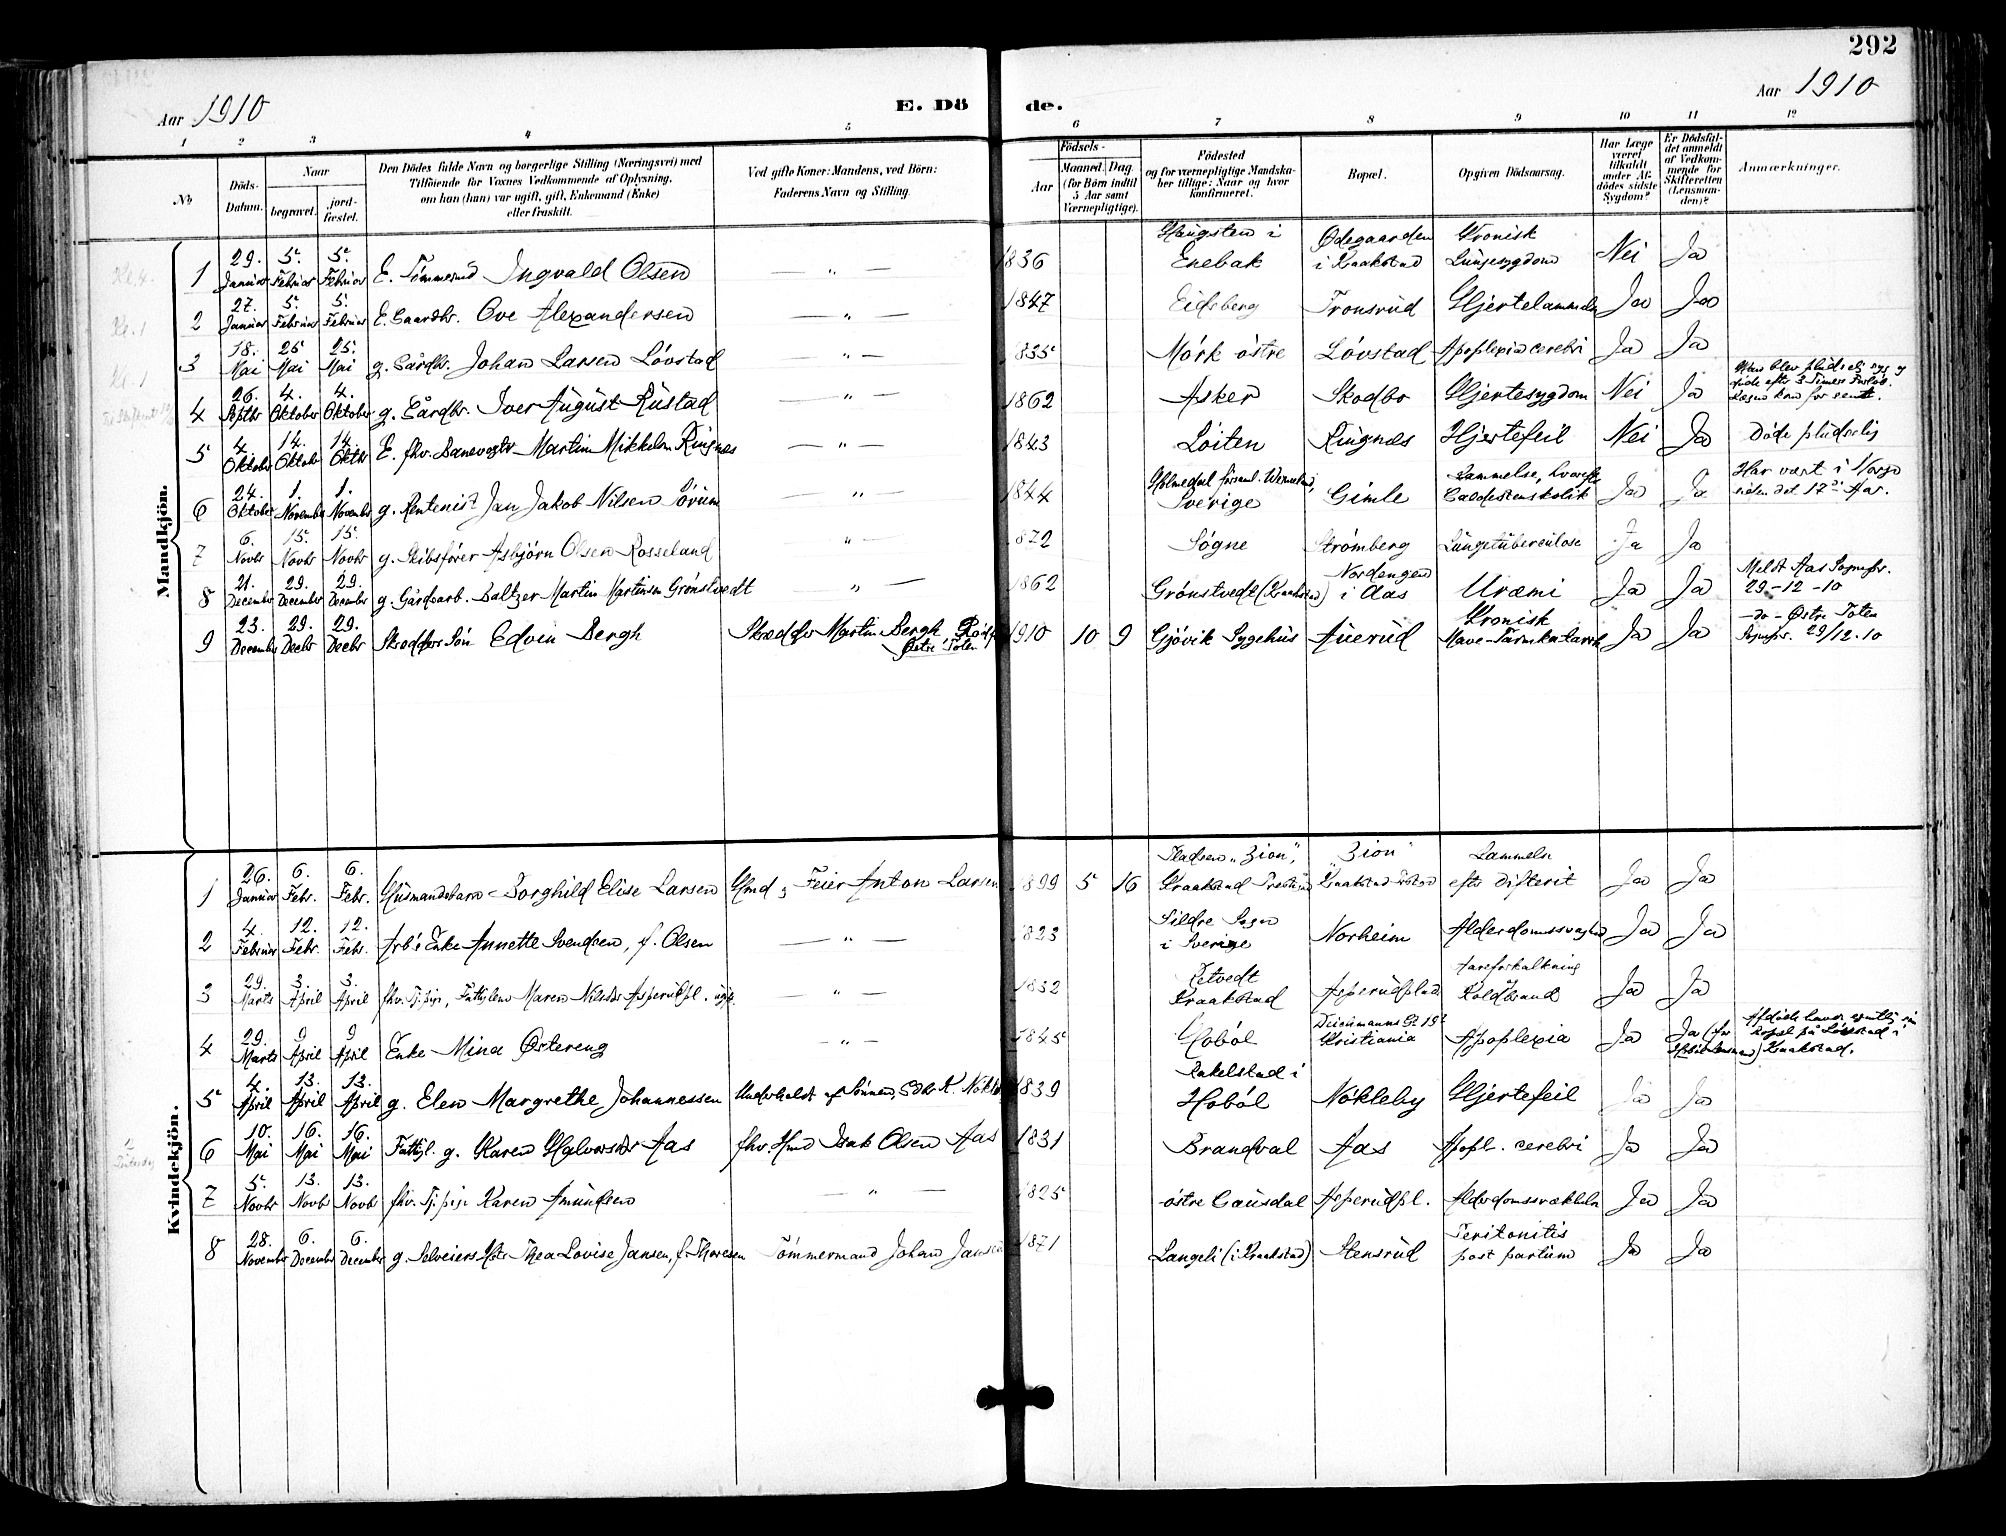 292
Aar 1910
E. Dö de.
Aar 1910
1 2 3 4 5 6 7 8 9 10 11 12
No
Döds-Datum.
Naar
begravet.
jordfæstet.
Den Dödes fulde Navn og borgerlige Stilling (Næringsvei) med
Tilföiende for Voxnes Vedkommende af Oplysning,
om han (hun) var ugift, gift, Enkemand (Enke)
eller fraskilt.
Ved gifte Koner: Mandens, ved Börn:
Faderens Navn og Stilling.
Födsels-
Aar
Maaned. Dag.
(for Börn indtil
5 Aar samt
Værnepligtige).
Födested
og for værnepligtige Mandska-
ber tillige: Naar og hvor
konfirmeret.
Bopæl.
Opgiven Dödsaarsag.
Har Læge
været
tilkaldt
under Af-
dödes sidste
Sygdom?
Er Dödsfal-
det anmeldt
af Vedkom-
mende for
Skifteretten
(Lensman-
den)?
Anmærkninger.
Mandkjön.
1 29. Januar 5. Februar 5. Februar E. Tømmermd Ingvald Olsen — " — 1836 Haugsten i Enebak Ødegaarden i Kraakstad Kronisk Lungesygdom Nei Ja
2 27. Januar 5. Februar 5. Februar E. Gaardbr. Ove Alexandersen — " — 1847 Eidsberg Tronsrud Hjertelammelse Ja Ja
3 18. Mai 25 Mai 25. Mai g. Gårdbr. Johan Larsen Løvstad — " — 1835 Mørk østre Løvstad Apoplexia cerebri Ja Ja
4 26. Septbr 4. Oktober 4. Oktober g. Gårdbr. Iver August Rustad — " — 1862 Asker Skodbo Hjertesygdom Nei Ja Han blev pludselig syg og døde efter 3 Timers Forløb. Lægen kom for sent.
5 4. Oktober 14. Oktobr 14. Oktbr E. fhv. Banevogter Martin Mikkelsen Ringnes — " — 1843 Løiten Ringnæs Hjertefeil Nei Ja Døde pludselig
6 24. Oktober 1. November 1. November g. Rentenist Jan Jakob Nilsen Sørum — " — 1844 Holmedal forsaml. Wermland, Sverige Gimle Lammelse, hvorefter Galdestenskolik Ja Ja Har vært i Norge siden det 17de Aar.
7 6. Novbr 15. Novbr 15. Novbr g. Skibsfører Asbjørn Olsen Rosseland — " — 1872 Søgne Strømberg Lungetuberculose Ja Ja
8 21. December 29. December 29. December g. Gårdarb. Baltzer Martin Martinsen Grønstvedt — " — 1862 Grønstvedt (Kraakstad) Nordengen i Aas Uræmi Ja Ja Meldt Aas Sognepr. 29-12-10
9 23. December 29. Decbr 29. Decbr Skrædders Søn Edvin Bergh Skrædder Martin Bergh Østre Toten 1910 10 9 Gjøvik Sygehus Auerud Kronisk Mave-Tarmkatarrh Ja Ja — do — Østre Toten Sognepr. 29/12.10
Kvindekjön.
1 26. Januar 6. Febr. 6. Febr. Husmandsbarn Borghild Elise Larsen Hmd & Feier Anton Larsen 1899 5 16 Pladsen "Zion", Kraakstad Prestegd "Zion" Kraakstad Lammelse efter Difterit Ja Ja
2 4. Februar 12. Febr. 12. Febr. Arb's Enke Annette Svendsen, f. Olsen — " — 1823 Sildre Sogn i Sverige Norheim Alderdomssvaghed Ja Ja
3 29. Marts 3. April 3. April fhv. Tj.pige, Fattiglem Maren Nilsdtr Asperudpl. ugift — " — 1832 Tetvedt Kraakstad Asperudplad. Aareforkalkning og Koldbrand Ja Ja
4 29. Marts 9 April 9 April Enke Mina Østereng — " — 1845 Hobøl Deichmanns Gt 19 Kristiania Apoplexia Ja Ja (for Hobøl Lensmand) Afdøde havde egentlig sin bopæl på Løvstad i Kraakstad.
5 4. April 13. April 13. April g. Elen Margrethe Johannessen Underholdt af Sønnen, Gdbr K. Nøkleby 1839 Rakelstad i Hobøl Nøkleby Hjertefeil Ja Ja
6 10. Mai 16. Mai 16. Mai Fattigl. g. Karen Halvorsdtr Aas fhv. Hmd Isak Olsen Aas 1831 Brandval Aas Apopl. cerebri Ja Ja
7 5. Novbr 13. Novbr 13. Novbr fhv. Tj.pige Karen Amundsen — " — 1825 østre Gausdal Asperudpl. Alderdomssvækkelse Ja Ja
8 28. November 6. December 6. December g. Selveiers Hstr Thea Lovise Jansen, f. Thoresen Tømmermand Johan Jansen 1871 Langeli (i Kraakstad) Stensrud Peritonitis post partum Ja Ja